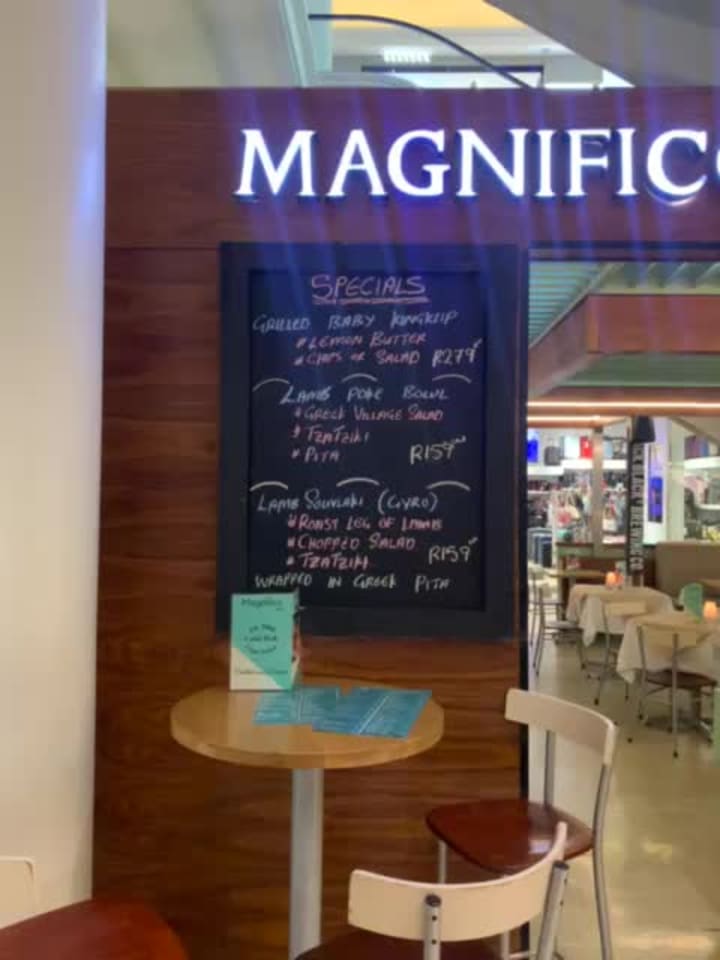 MAGNIFICO
SPECIALS
GRILLED BABY KINGKLIP
# LEMON BUTTER
# CHIPS OR SALAD R279
LAMB POKE BOWL
# GREEK VILLAGE SALAD
# TZATZIKI
# PITA R159
LAMB SOUVLAKI (GYRO)
# ROAST LEG OF LAMB
# CHOPPED SALAD
# TZATZIKI R159
WRAPPED IN GREEK PITA
Magnifico
BLACK BREWING CO